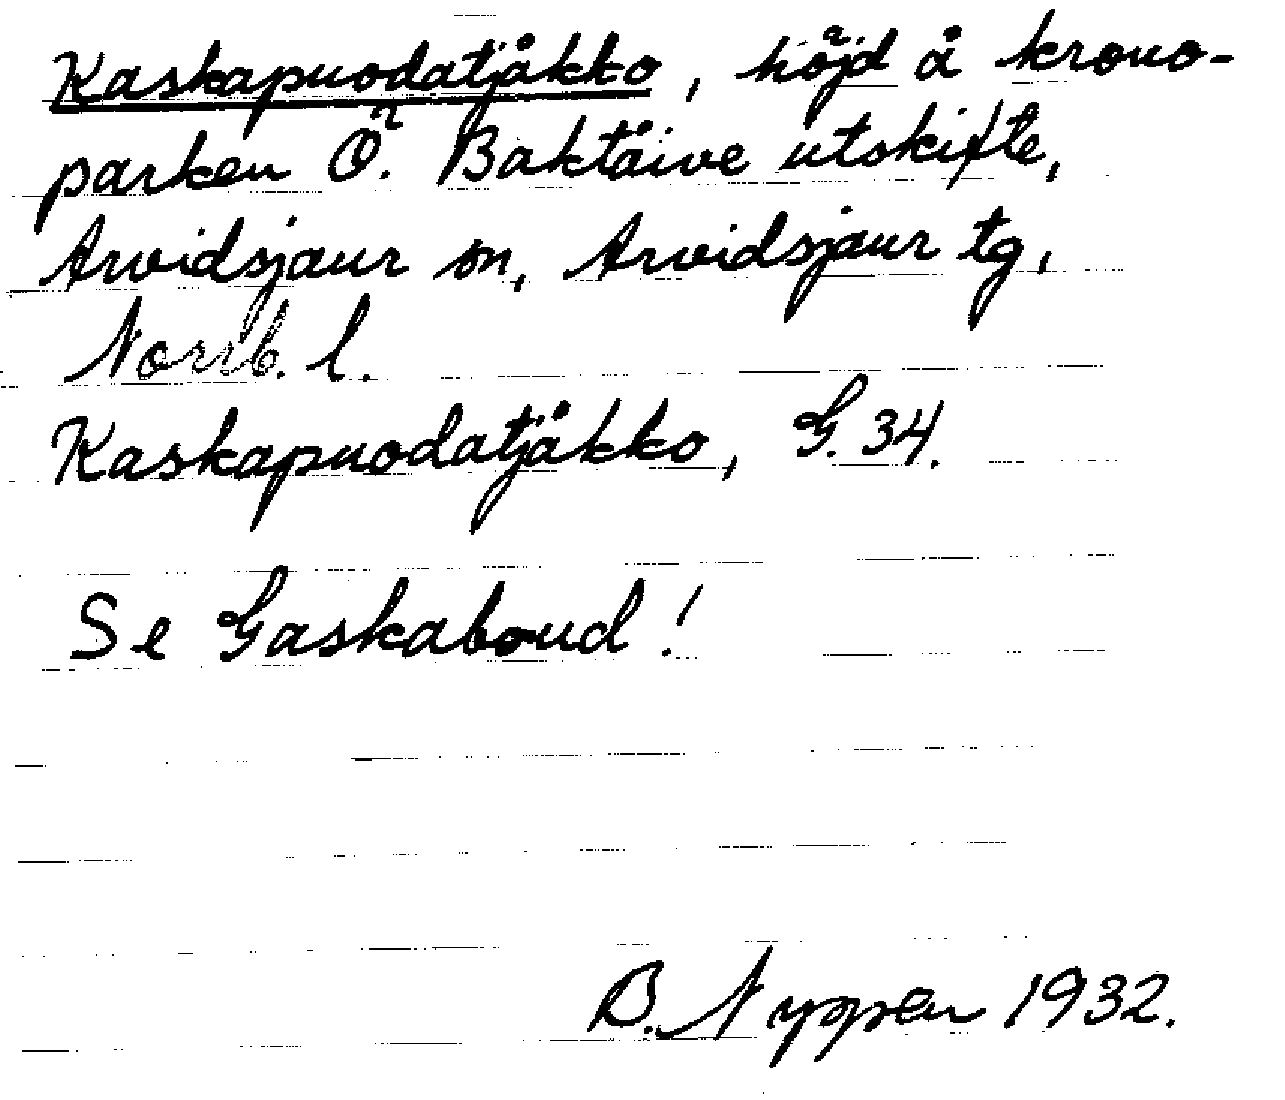 Kaskapuodatjåkko, höjd å krono-
parken Ö. Baktäive utskifte,
Arvidsjaur sn, Arvidsjaur tg,
Norrb. l.
Kaskapuodatjåkko, G. 34.
Se Gaskaboud!
B. Nyppen 1932.